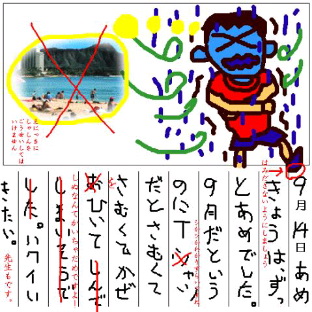 えにっきに
しゃしんを
ごうせいしては
いけません
9月14日あめ
はみださないようにしましょう
きょうは、ずっ
とあめでした。
9月だという
のにTシャツ
だとさむくて
さむくてかぜ
を
おひいてしんで
しぬなんてかいちゃだめですよ!
しまいそうで
した。ハワイい
きたい。
先生もです。